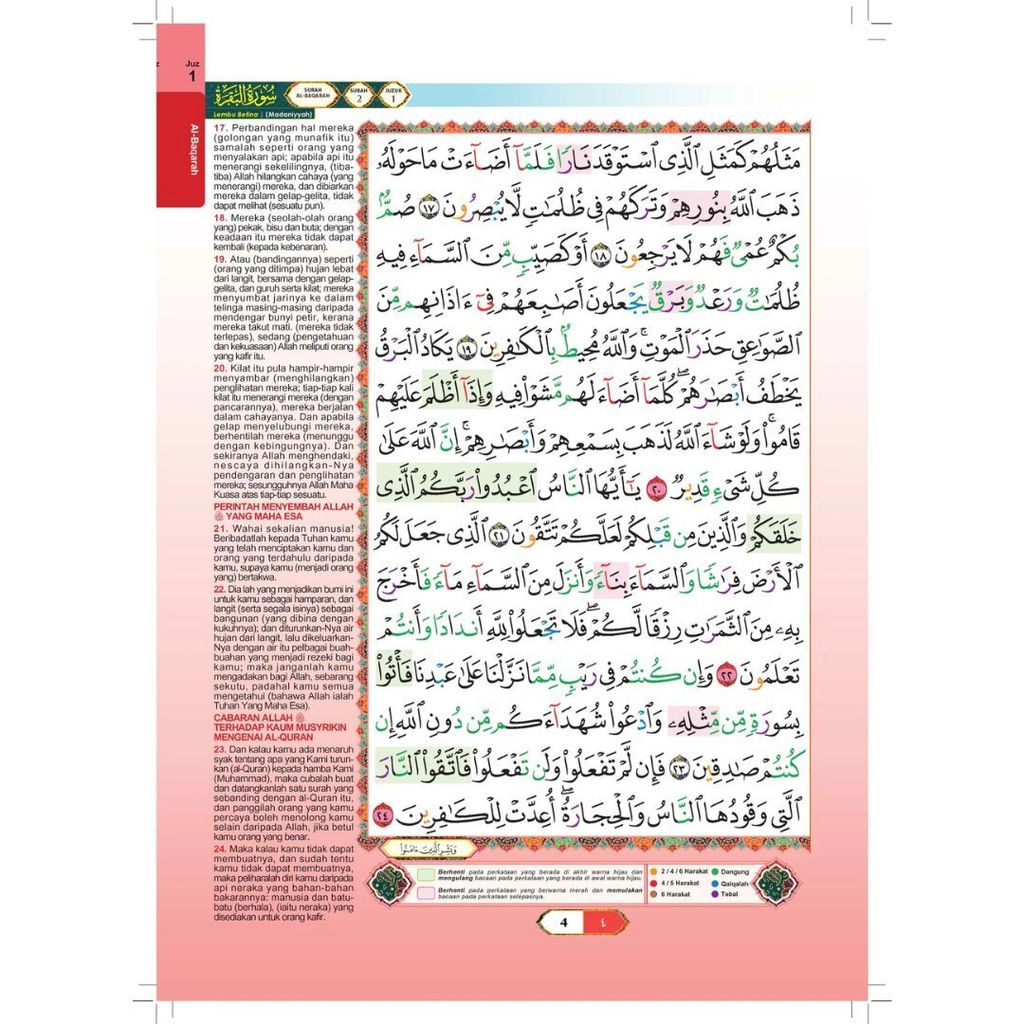 Juz
1
Al-Baqarah
سُورَةُ الْبَقَرَةِ
SURAH
AL-BAQARAH
SURAH
2
JUZUK
1
Lembu Betina | (Madaniyyah)
17. Perbandingan hal mereka
(golongan yang munafik itu)
samalah seperti orang yang
menyalakan api; apabila api itu
menerangi sekelilingnya, (tiba-
tiba) Allah hilangkan cahaya (yang
menerangi) mereka, dan dibiarkan
mereka dalam gelap-gelita, tidak
dapat melihat (sesuatu pun).
18. Mereka (seolah-olah orang
yang) pekak, bisu dan buta; dengan
keadaan itu mereka tidak dapat
kembali (kepada kebenaran).
19. Atau (bandingannya) seperti
(orang yang ditimpa) hujan lebat
dari langit, bersama dengan gelap-
gelita, dan guruh serta kilat; mereka
menyumbat jarinya ke dalam
telinga masing-masing daripada
mendengar bunyi petir, kerana
mereka takut mati. (mereka tidak
terlepas), sedang (pengetahuan
dan kekuasaan) Allah meliputi orang
yang kafir itu.
20. Kilat itu pula hampir-hampir
menyambar (menghilangkan)
penglihatan mereka; tiap-tiap kali
kilat itu menerangi mereka (dengan
pancarannya), mereka berjalan
dalam cahayanya. Dan apabila
gelap menyelubungi mereka,
berhentilah mereka (menunggu
dengan kebingungnya). Dan
sekiranya Allah menghendaki,
nescaya dihilangkan-Nya
pendengaran dan penglihatan
mereka; sesungguhnya Allah Maha
Kuasa atas tiap-tiap sesuatu.
PERINTAH MENYEMBAH ALLAH
YANG MAHA ESA
21. Wahai sekalian manusia!
Beribadatlah kepada Tuhan kamu
yang telah menciptakan kamu dan
orang yang terdahulu daripada
kamu, supaya kamu (menjadi orang
yang) bertakwa.
22. Dia lah yang menjadikan bumi ini
untuk kamu sebagai hamparan, dan
langit (serta segala isinya) sebagai
bangunan (yang dibina dengan
kukuhnya); dan diturunkan-Nya air
hujan dari langit, lalu dikeluarkan-
Nya dengan air itu pelbagai buah-
buahan yang menjadi rezeki bagi
kamu; maka janganlah kamu
mengadakan bagi Allah, sebarang
sekutu, padahal kamu semua
mengetahui (bahawa Allah ialah
Tuhan Yang Maha Esa).
CABARAN ALLAH
TERHADAP KAUM MUSYRIKIN
MENGENAI AL-QURAN
23. Dan kalau kamu ada menaruh
syak tentang apa yang Kami turun-
kan (al-Quran) kepada hamba Kami
(Muhammad), maka cubalah buat
dan datangkanlah satu surah yang
sebanding dengan al-Quran itu,
dan panggilah orang yang kamu
percaya boleh menolong kamu
selain daripada Allah, jika betul
kamu orang yang benar.
24. Maka kalau kamu tidak dapat
membuatnya, dan sudah tentu
kamu tidak dapat membuatnya,
maka peliharalah diri kamu daripada
api neraka yang bahan-bahan
bakarannya: manusia dan batu-
batu (berhala), (iaitu neraka) yang
disediakan untuk orang kafir.
مَثَلُهُمْ كَمَثَلِ ٱلَّذِى ٱسْتَوْقَدَ نَارًا فَلَمَّآ أَضَآءَتْ مَا حَوْلَهُۥ
ذَهَبَ ٱللَّهُ بِنُورِهِمْ وَتَرَكَهُمْ فِى ظُلُمَـٰتٍ لَّا يُبْصِرُونَ ١٧ صُمٌّۢ
بُكْمٌ عُمْىٌ فَهُمْ لَا يَرْجِعُونَ ١٨ أَوْ كَصَيِّبٍ مِّنَ ٱلسَّمَآءِ فِيهِ
ظُلُمَـٰتٌ وَرَعْدٌ وَبَرْقٌ يَجْعَلُونَ أَصَـٰبِعَهُمْ فِىٓ ءَاذَانِهِم مِّنَ
ٱلصَّوَٰعِقِ حَذَرَ ٱلْمَوْتِ ۚ وَٱللَّهُ مُحِيطٌۢ بِٱلْكَـٰفِرِينَ ١٩ يَكَادُ ٱلْبَرْقُ
يَخْطَفُ أَبْصَـٰرَهُمْ ۖ كُلَّمَآ أَضَآءَ لَهُم مَّشَوْا۟ فِيهِ وَإِذَآ أَظْلَمَ عَلَيْهِمْ
قَامُوا۟ ۚ وَلَوْ شَآءَ ٱللَّهُ لَذَهَبَ بِسَمْعِهِمْ وَأَبْصَـٰرِهِمْ ۚ إِنَّ ٱللَّهَ عَلَىٰ
كُلِّ شَىْءٍ قَدِيرٌ ٢٠ يَـٰٓأَيُّهَا ٱلنَّاسُ ٱعْبُدُوا۟ رَبَّكُمُ ٱلَّذِى
خَلَقَكُمْ وَٱلَّذِينَ مِن قَبْلِكُمْ لَعَلَّكُمْ تَتَّقُونَ ٢١ ٱلَّذِى جَعَلَ لَكُمُ
ٱلْأَرْضَ فِرَٰشًا وَٱلسَّمَآءَ بِنَآءً وَأَنزَلَ مِنَ ٱلسَّمَآءِ مَآءً فَأَخْرَجَ
بِهِۦ مِنَ ٱلثَّمَرَٰتِ رِزْقًا لَّكُمْ ۖ فَلَا تَجْعَلُوا۟ لِلَّهِ أَندَادًا وَأَنتُمْ
تَعْلَمُونَ ٢٢ وَإِن كُنتُمْ فِى رَيْبٍ مِّمَّا نَزَّلْنَا عَلَىٰ عَبْدِنَا فَأْتُوا۟
بِسُورَةٍ مِّن مِّثْلِهِۦ وَٱدْعُوا۟ شُهَدَآءَكُم مِّن دُونِ ٱللَّهِ إِن
كُنتُمْ صَـٰدِقِينَ ٢٣ فَإِن لَّمْ تَفْعَلُوا۟ وَلَن تَفْعَلُوا۟ فَٱتَّقُوا۟ ٱلنَّارَ
ٱلَّتِى وَقُودُهَا ٱلنَّاسُ وَٱلْحِجَارَةُ ۖ أُعِدَّتْ لِلْكَـٰفِرِينَ ٢٤
وَبَشِّرِ ٱلَّذِينَ ءَامَنُوا۟
Berhenti pada perkataan yang berada di akhir warna hijau dan
mengulang bacaan pada perkataan yang berada di awal warna hijau.
Berhenti pada perkataan yang berwarna merah dan memulakan
bacaan pada perkataan selepasnya.
2 / 4 / 6 Harakat
4 / 5 Harakat
6 Harakat
Dengung
Qalqalah
Tebal
4
٤